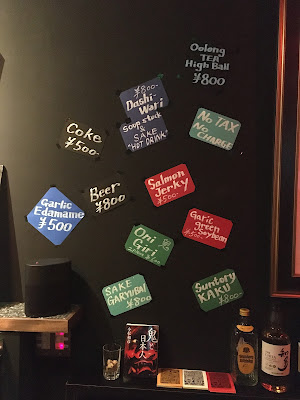 Oolong
TEA
High Ball
¥800
¥800-
Dashi-
Wari
Soup stock
&
SAKE
"HOT DRINK"
No TAX
No
CHARGE
Coke
¥500-
Salmon
Jerky
¥500-
Beer
¥800
Garlic
Edamame
¥500
Garic
green
Soybean
Oni
Giri
SAKE
GARYUBAI
¥800
Suntory
KAKU
¥800-
鬼と
日本人